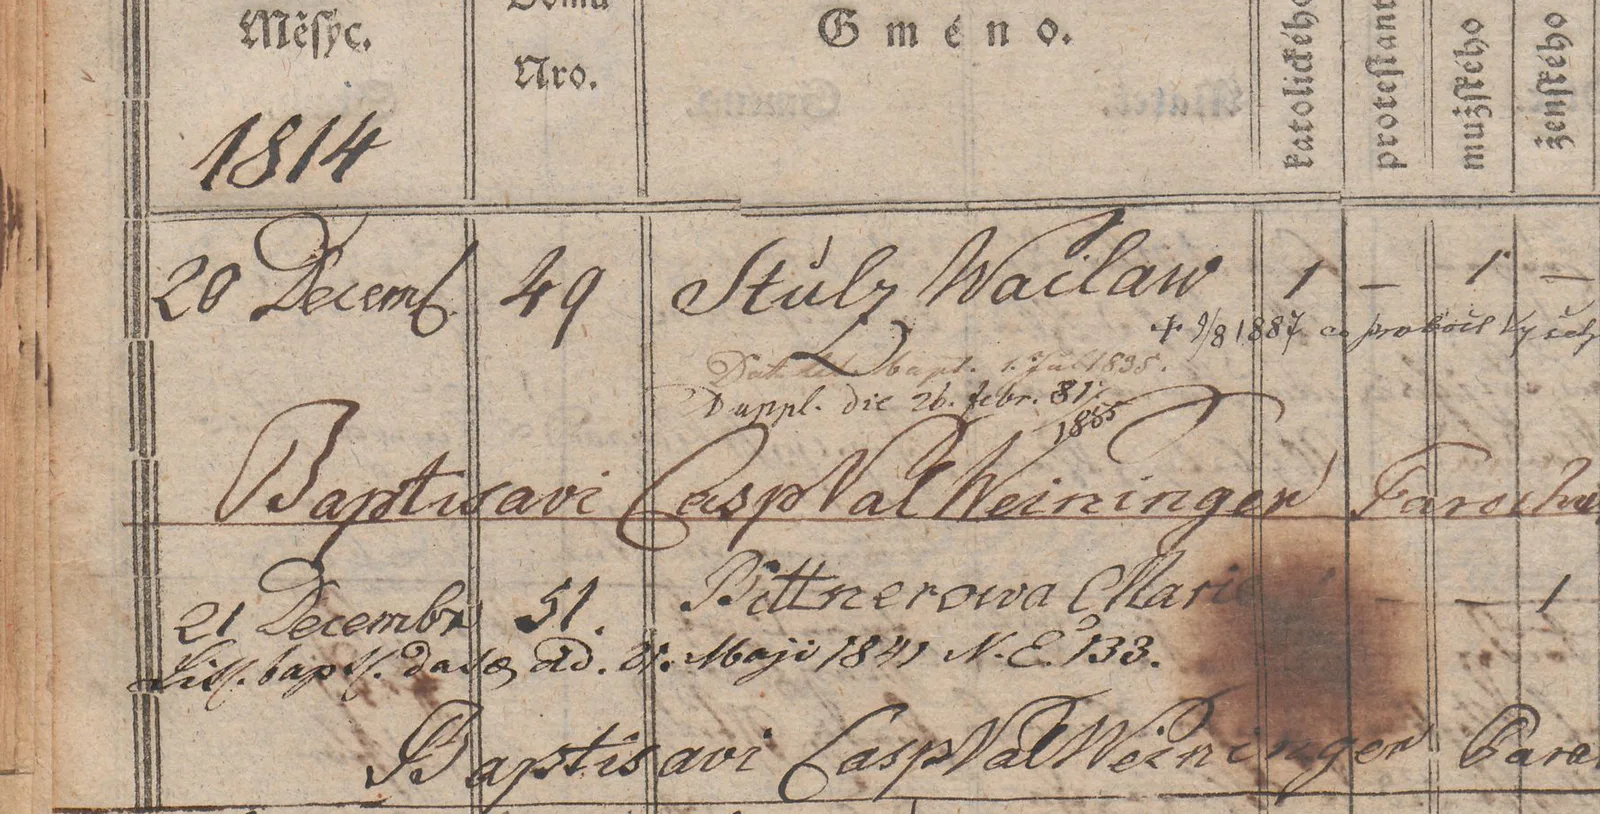 Měsyc.
Domu
Nro.
Gméno.
katolického
protestant
mužského
ženského
1814
20 Decemb. 49 Stulz Waclaw 1 – 1 –
+ 9/8 1887 co probošt Vyšeh
bapt. 1. Jul 1835.
Duppl. die 26. febr. 81.
1855
Baptisavi Casp Val Weininger Parochu
21 Decembr 51. Bittnerowa Marie – – 1
Litt. bapt. datæ dd. 21. Maji 1841 N. E. 133.
Baptisavi Casp Val Weininger Paro